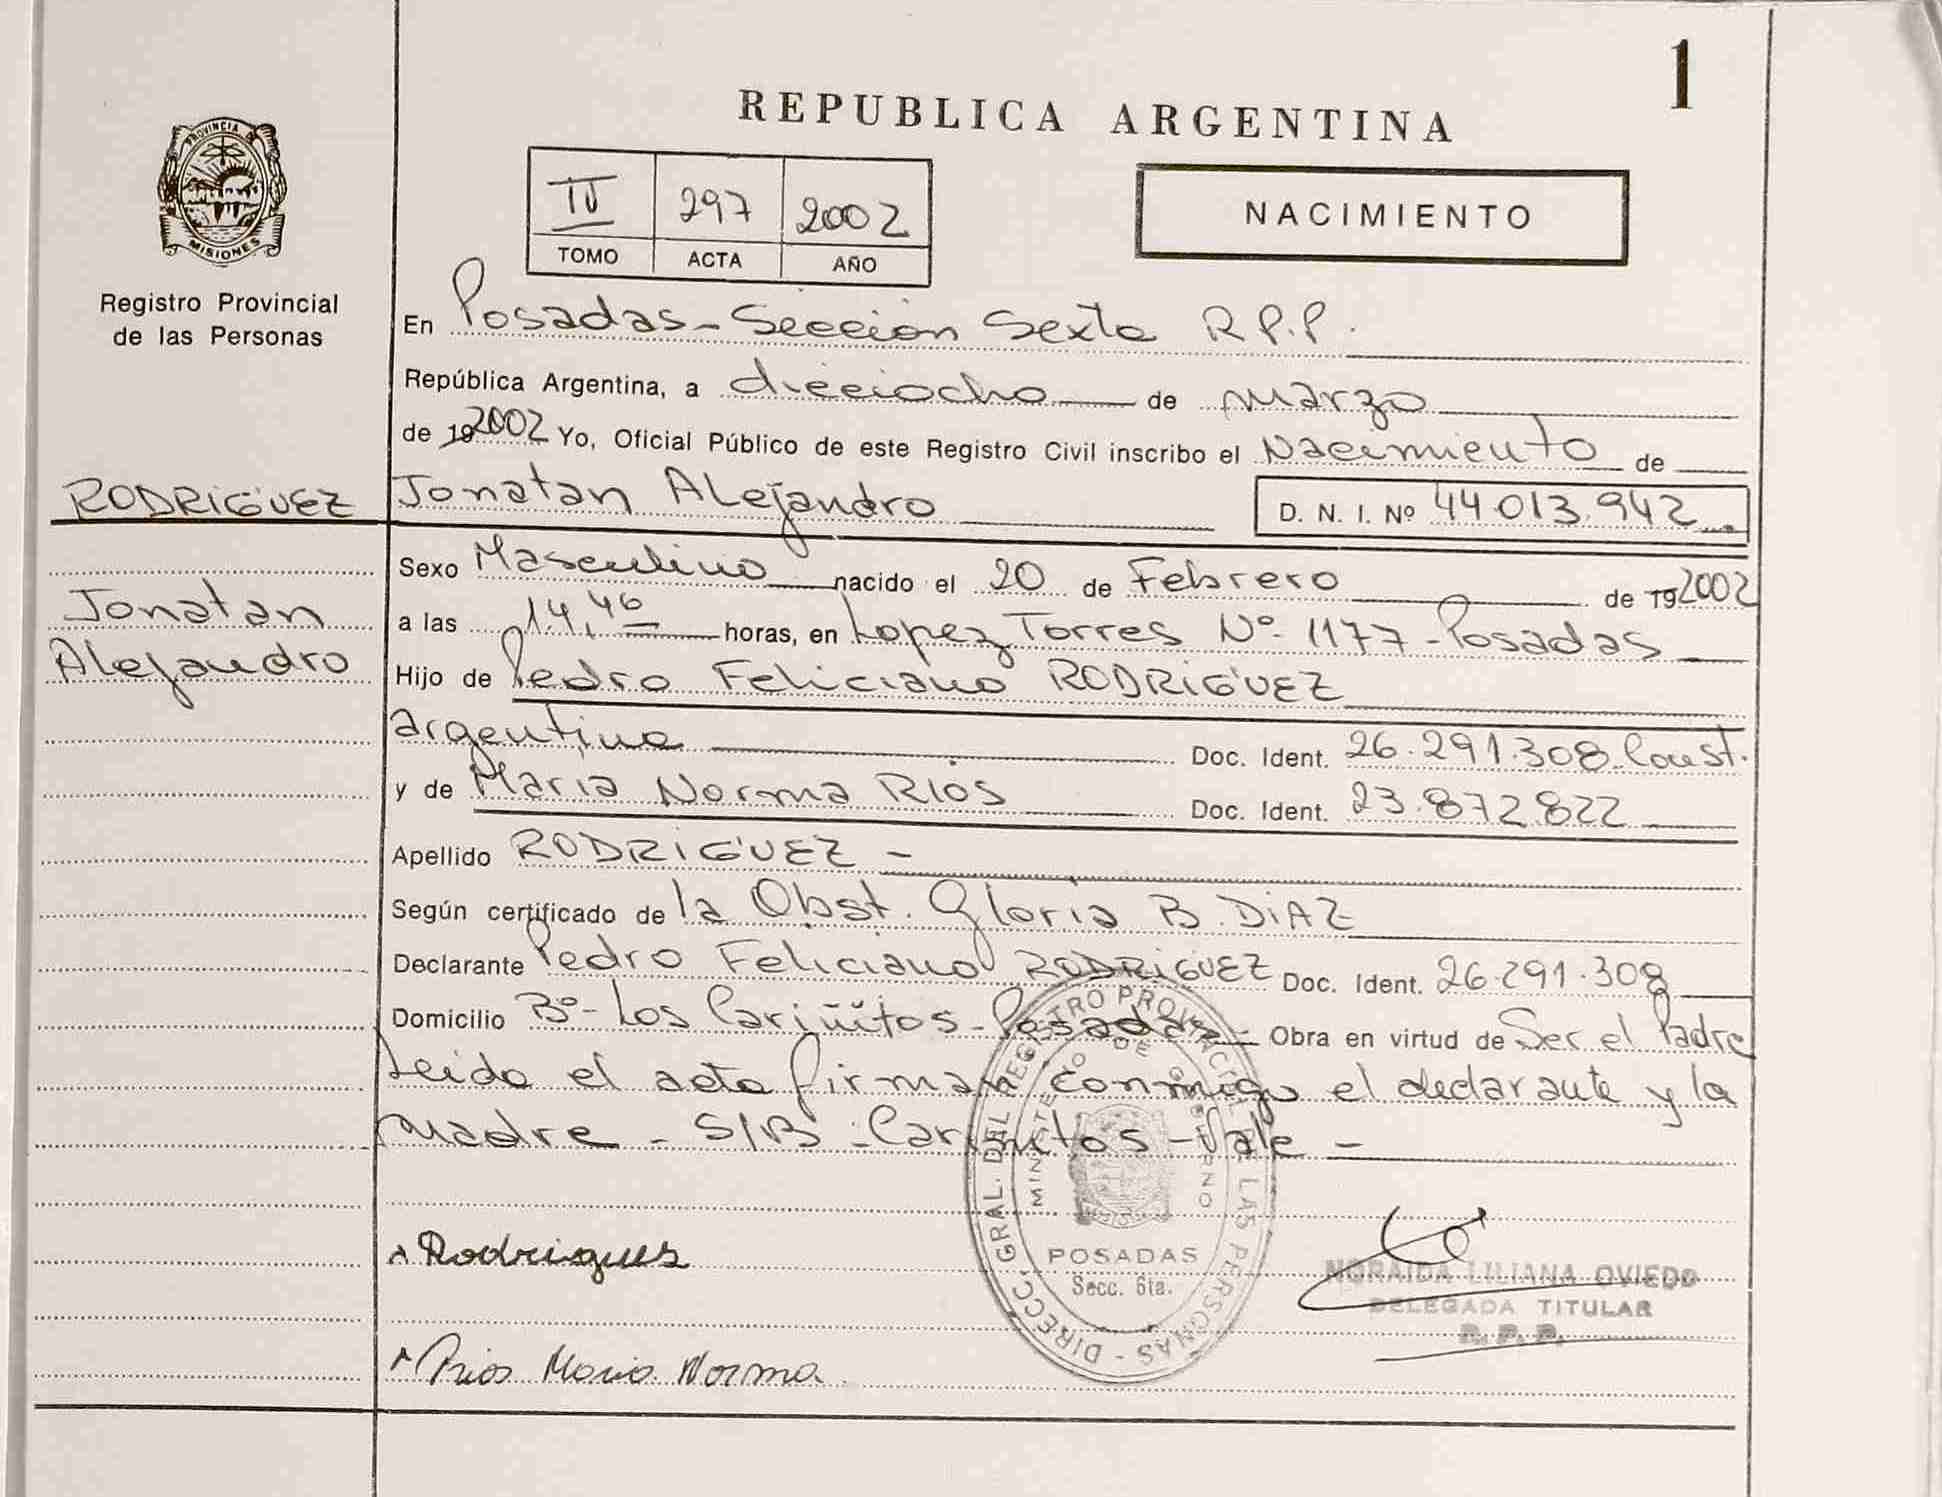 1
REPUBLICA ARGENTINA
PROVINCIA DE
MISIONES
Registro Provincial
de las Personas
297 2002
TOMO ACTA AÑO
NACIMIENTO
En Posadas - Seccion Sexta R.P.P.
República Argentina, a dieciocho de marzo
de 192002 Yo, Oficial Público de este Registro Civil inscribo el Nacimiento de
RODRIGUEZ Jonatan Alejandro D. N. I. Nº 44.013.942
Jonatan
Alejandro
Sexo Masculino nacido el 20 de Febrero de 192002
a las 14,46 horas, en Lopez Torres Nº 1177 - Posadas
Hijo de Pedro Feliciano RODRIGUEZ
argentino Doc. Ident. 26.291.308 Const.
y de Maria Norma RIOS Doc. Ident. 23.872.822
Apellido RODRIGUEZ -
Según certificado de la Obst. Gloria B. DIAZ
Declarante Pedro Feliciano RODRIGUEZ Doc. Ident. 26.291.308
Domicilio Bº- Los Cariñitos - Posadas - Obra en virtud de Ser el Padre
Leida el acta firman conmigo el declarante y la
madre - S/B - Cariñitos - Vale -
DIRECC. GRAL. DEL REGISTRO PROVINCIAL DE LAS PERSONAS
MINISTERIO DE GOBIERNO
POSADAS
Secc. 6ta.
Rodrigues
NORAIDA LILIANA OVIEDO
DELEGADA TITULAR
R. P. P.
Rios Maria Norma